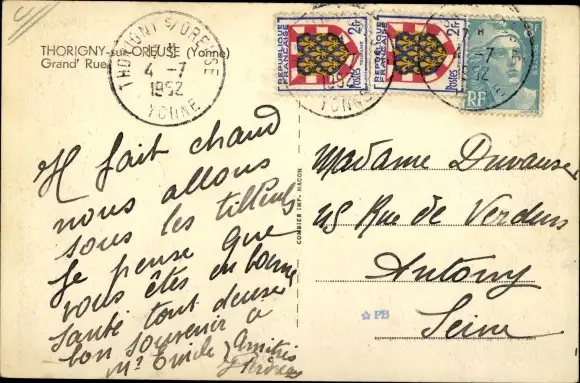 THORIGNY-sur-OREUSE (Yonne)
Grand' Rue
THORIGNY S/OREUSE
4 -7
1952
YONNE
REPUBLIQUE FRANÇAISE
2F
Postes
REPUBLIQUE FRANÇAISE
2F
Postes
1952
YONNE
RF
Il fait chaud
nous allons
sous les tilleuls
Je pense que
vous êtes en bonne
santé tout
bon souvenir a
Mr Emile Amitiés
COMBIER IMP. MACON
Madame
45 Rue de Verdun
Antony
Seine
PB